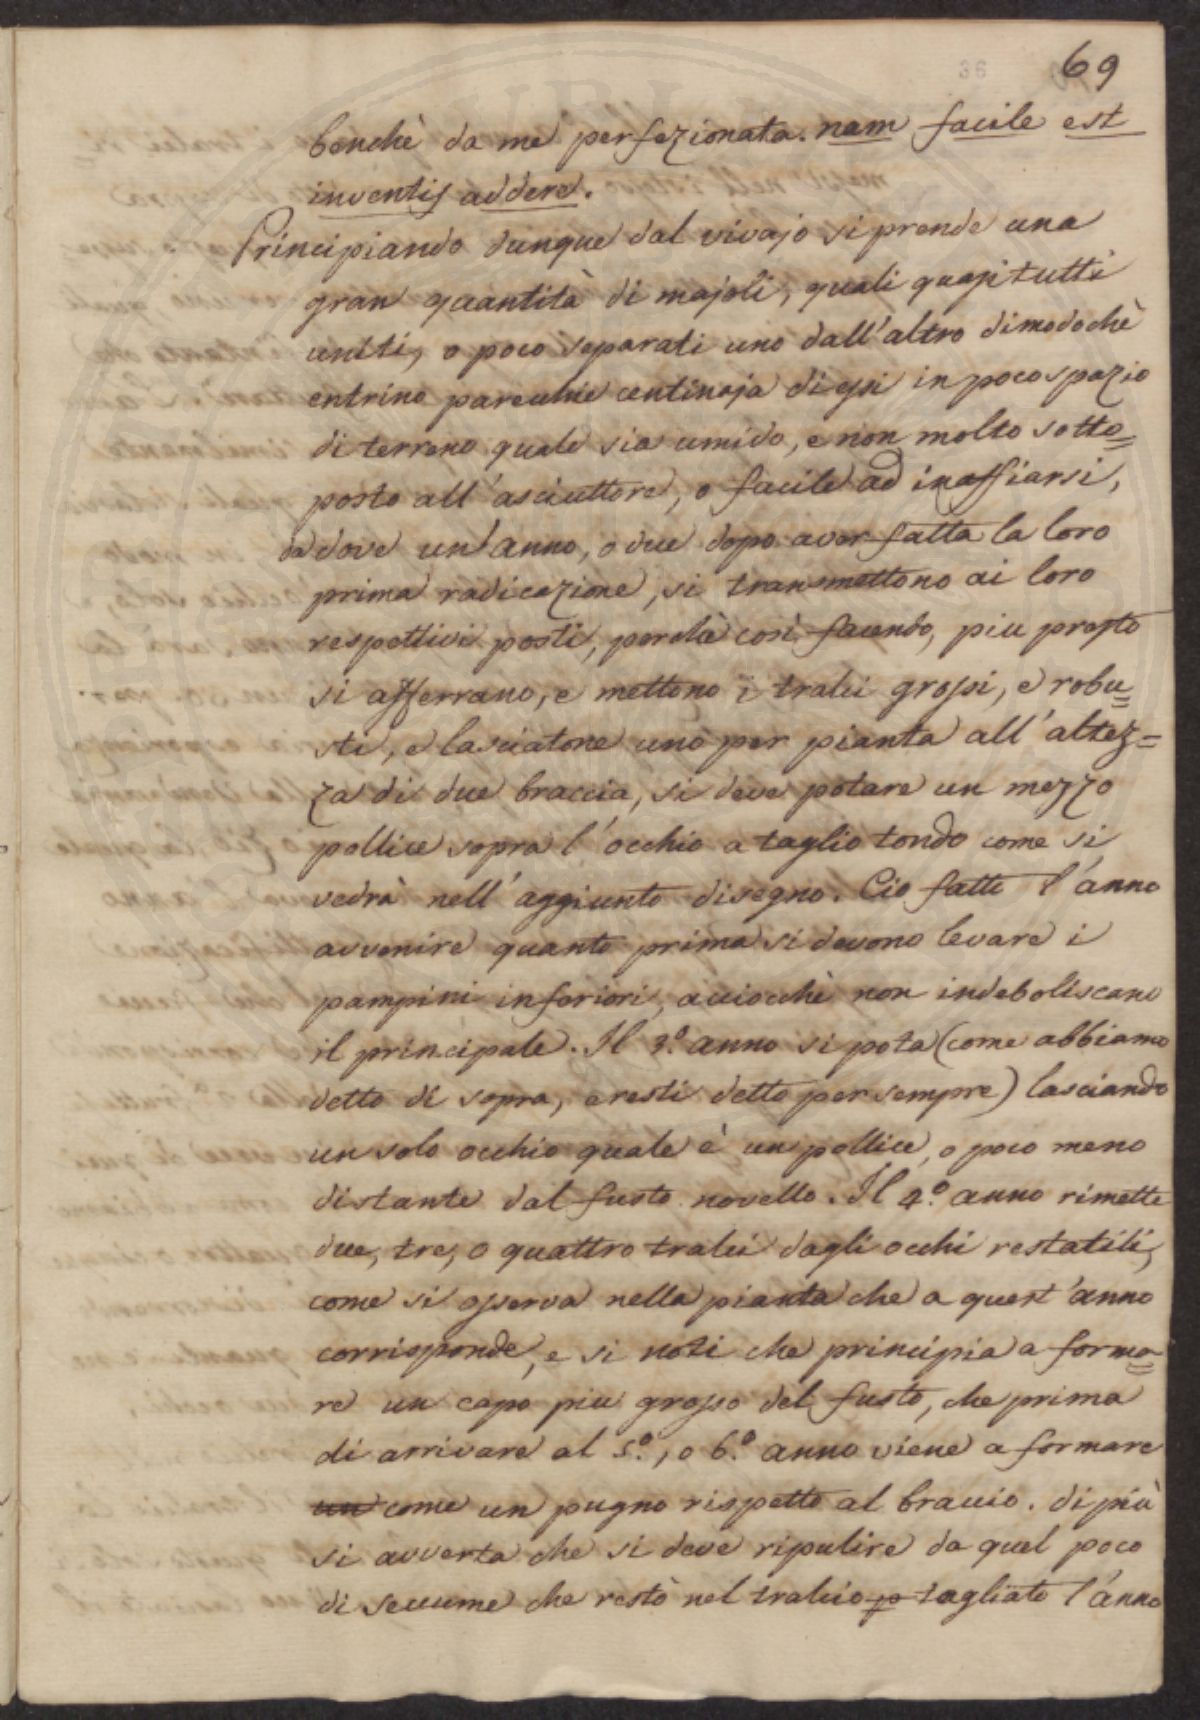 36 69
benchè da me perfezionata. nam facile est
inventis addere.
Principiando dunque dal vivajo si prende una
gran quantità di majoli, quali quasi tutti
uniti, o poco separati uno dall'altro dimodochè
entrino parecchie centinaja di essi in poco spazio
di terreno quale sia umido, e non molto sotto=
posto all'asciuttore, o facile ad inaffiarsi,
da dove un'anno, o due dopo aver fatta la loro
prima radicazione, si transmettono ai loro
respettivi posti, perchè così facendo, piu presto
si afferrano, e mettono i tralci grossi, e robu=
sti, e lasciatone uno per pianta all'altez=
za di due braccia, si deve potare un mezzo
pollice sopra l'occhio a taglio tondo come si
vedrà nell'aggiunto disegno. Cio fatto l'anno
avvenire quanto prima si devono levare i
pampini inferiori, acciocchè non indeboliscano
il principale. Il 3.º anno si pota (come abbiamo
detto di sopra, e resti detto per sempre) lasciando
un solo occhio quale è un pollice, o poco meno
distante dal fusto novello. Il 4.º anno rimette
due, tre, o quattro tralci dagli occhi restatili,
come si osserva nella pianta che a quest'anno
corrisponde, e si noti che principia a forma=
re un capo piu grosso del fusto, che prima
di arrivare al 5.º, o 6.º anno viene a formare
un come un pugno rispetto al braccio. di più
si avverta che si deve ripulire da quel poco
di seccume che restò nel tralcio po tagliato l'anno